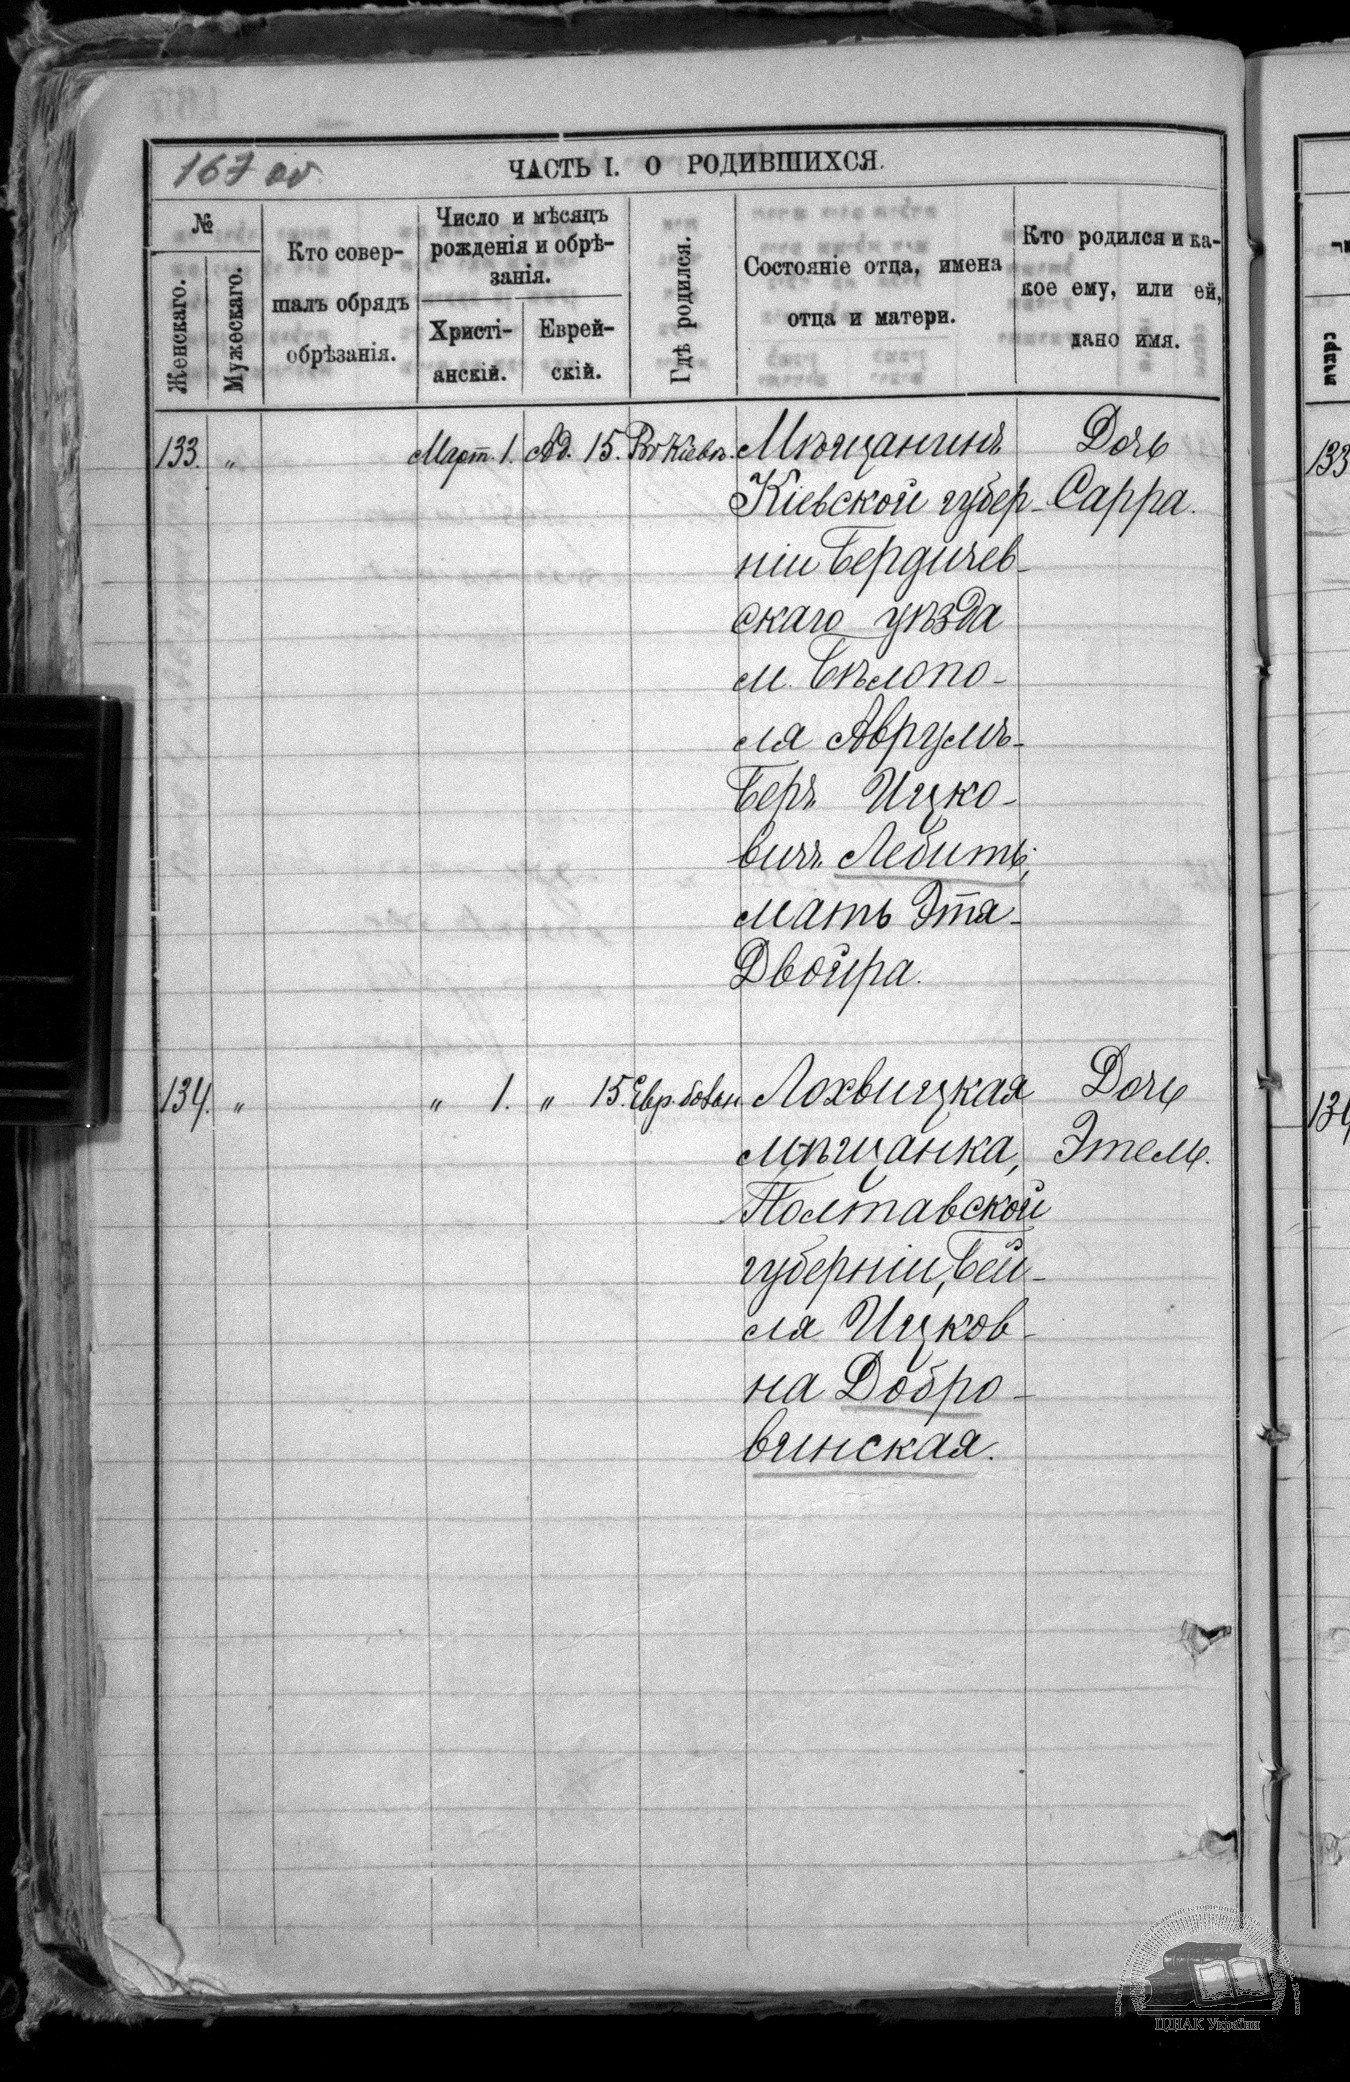 167 об
ЧАСТЬ I. О РОДИВШИХСЯ.
№
Женскаго.
Мужескаго.
Кто совер-
шалъ обрядъ
обрѣзанія.
Число и мѣсяцъ
рожденія и обрѣ-
занія.
Христі-
анскій.
Еврей-
скій.
Гдѣ родился.
Состояніе отца, имена
отца и матери.
Кто родился и ка-
кое ему, или ей,
дано имя.
133. „ Март. 1. Ад. 15. Въ Кіевѣ. Мѣщанинъ Дочь
Кіевской губер- Сарра.
ніи Бердичев-
скаго уѣзда
м. Бѣлопо-
ля Аврумъ-
Беръ Ицко-
вичъ Лебить;
мать Этя-
Двойра.
134. „ „ 1. „ 15. Евр. больн. Лохвицкая Дочь
мѣщанка, Этель.
Полтавской
губерніи, Бей-
ля Ицков-
на Добро-
винская.
133
134
ЦДІАК України